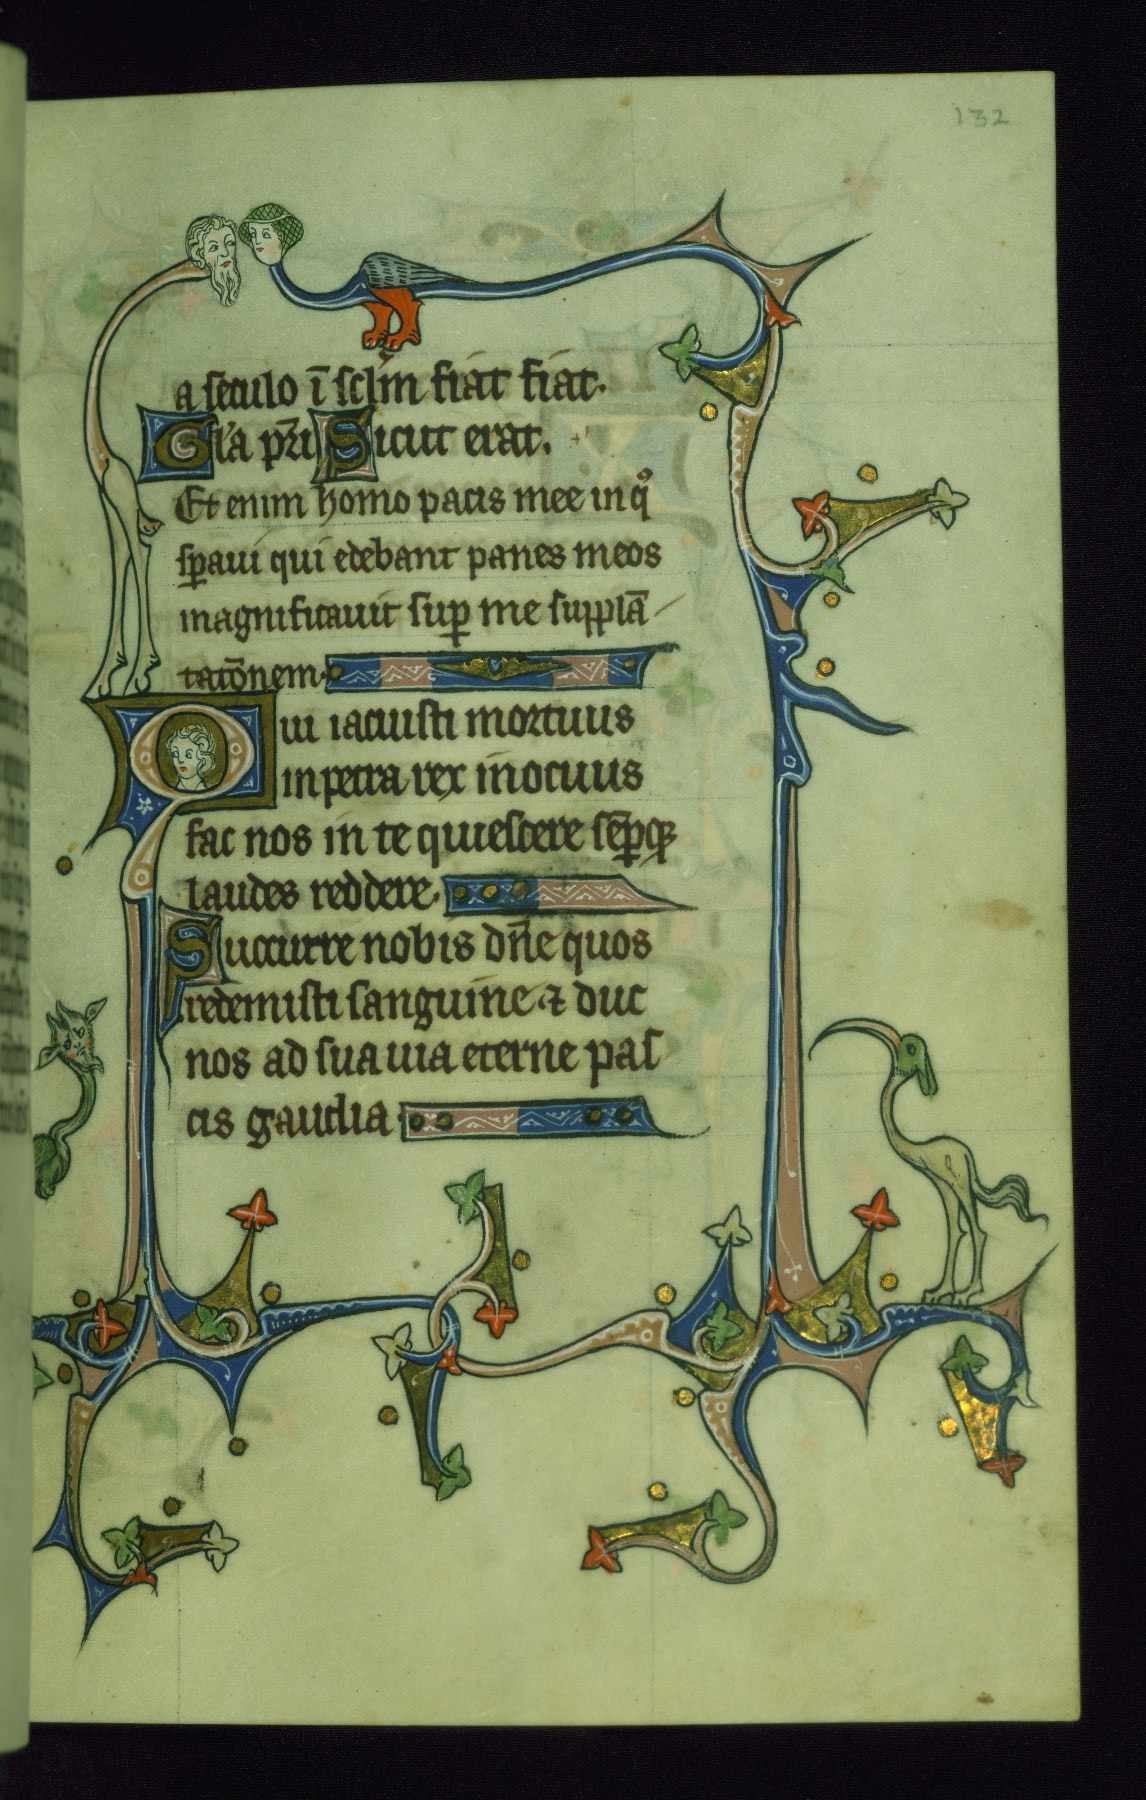 132
a seculo ī sclm̄ fiat fiat.
Gl'a pr̄i Sicut erat.
Et enim homo pacis mee in qͦ
sꝑaui qui edebant panes meos
magnificauit suꝑ me supplā
tatōnem.
Qui iacuisti mortuus
in petra rex inocuus
fac nos in te quiescere sēꝑqꝫ
laudes reddere.
Succurre nobis dn̄e quos
redemisti sanguine ⁊ duc
nos ad suauia eterne pas
cis gaudia